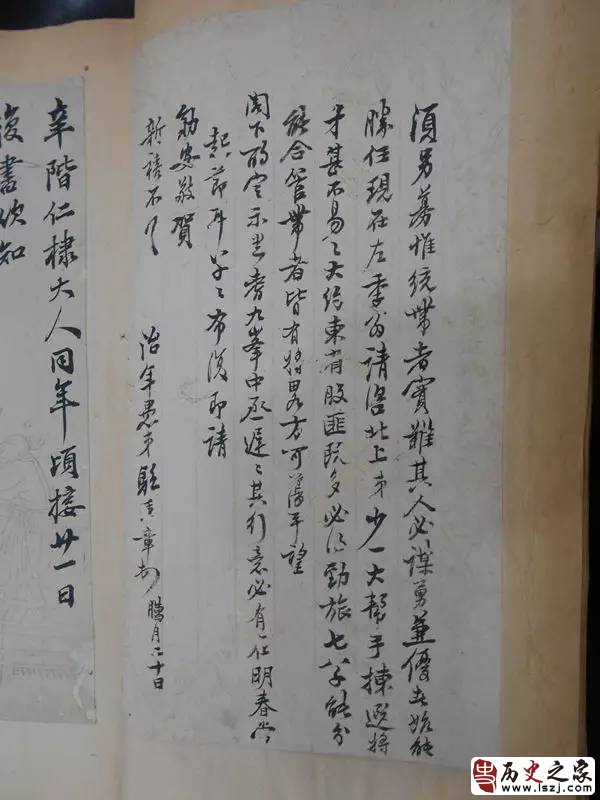 須另募惟統帶者實難其人必謀勇兼優者始能
勝任現在左季翁請咨北上弟少一大幫手揀選將
才甚不易々大約東省股匪既多必須勁旅七八千能分
能合管帶者皆有將略方可蕩平望
閣下酌定示悉耆九峯中丞遲々其行意必有在明春當
起節耳草々布復即請
勛安敬賀
新禧不一
治年愚弟駱秉章 臘月二十日
辛階仁棣大人同年頃接廿一日
復書欣知
历史之家
www.lszj.com